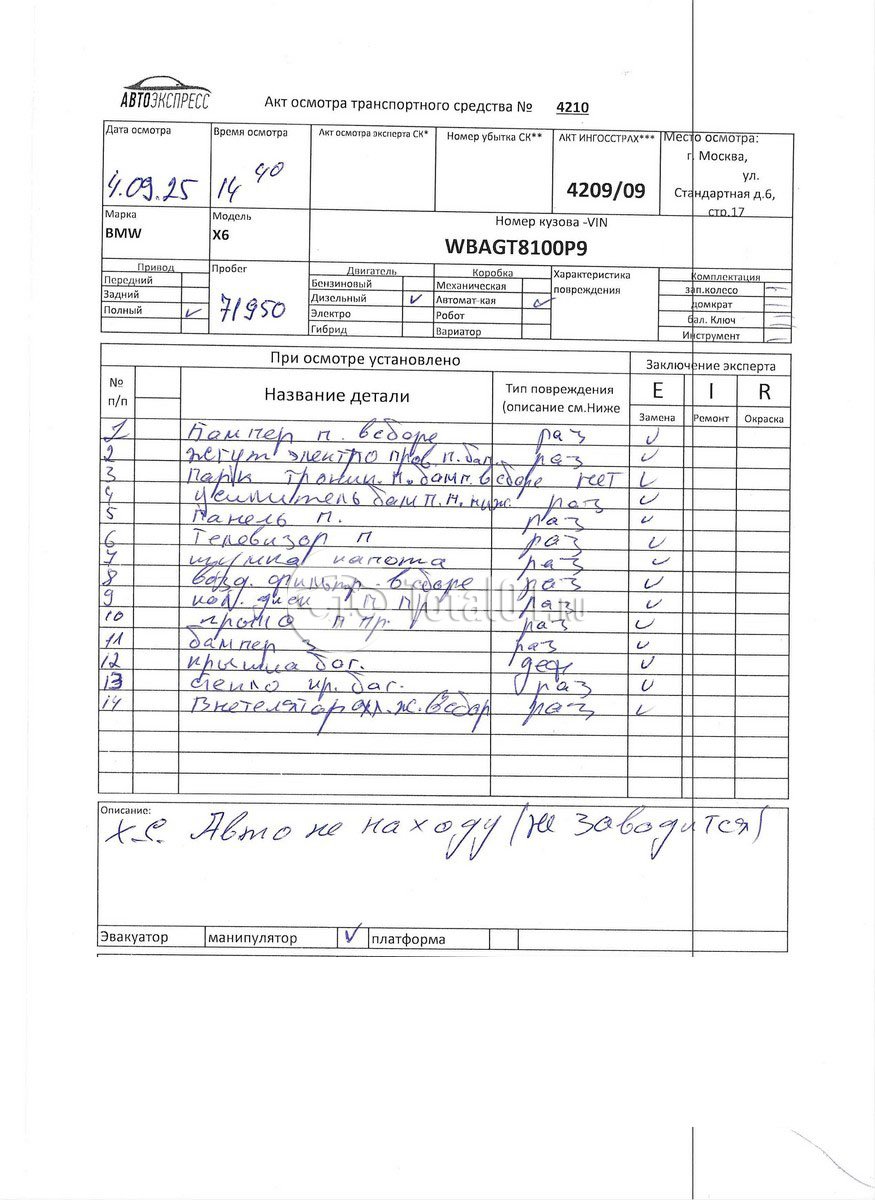 АВТОЭКСПРЕСС
Акт осмотра транспортного средства № 4210
Дата осмотра
Время осмотра
Акт осмотра эксперта СК*
Номер убытка СК**
АКТ ИНГОССТРАХ***
Место осмотра:
г. Москва,
ул.
Стандартная д.6,
стр.17
4.09.25
14 40
4209/09
Марка
BMW
Модель
X6
Номер кузова -VIN
WBAGT8100P9
Привод
Передний
Задний
Полный
Пробег
71950
Двигатель
Бензиновый
Дизельный
Электро
Гибрид
Коробка
Механическая
Автомат-кая
Робот
Вариатор
Характеристика
повреждения
Комплектация
зап.колесо
домкрат
бал. Ключ
Инструмент
При осмотре установлено
Заключение эксперта
№
п/п
Название детали
Тип повреждения
(описание см.Ниже
E I R
Замена Ремонт Окраска
1 Бампер п. всборе раз
2 жгут электро пров. п. бап. раз
3 Парк трони. п. бамп. всборе нет
4 усилитель бамп. п. ниж. раз
5 Панель п. раз
6 Телевизор п раз
7 капота раз
8 возд. фильтр. всборе раз
9 диск п пр раз
10 п пр. раз
11 бампер з раз
12 крышка баг. деф
13 стекло кр. баг. раз
14 Внетелятор охл. ж. всбор раз
Описание:
Х.С. Авто не на ходу (не заводится)
Эвакуатор
манипулятор
платформа
Total01.ru